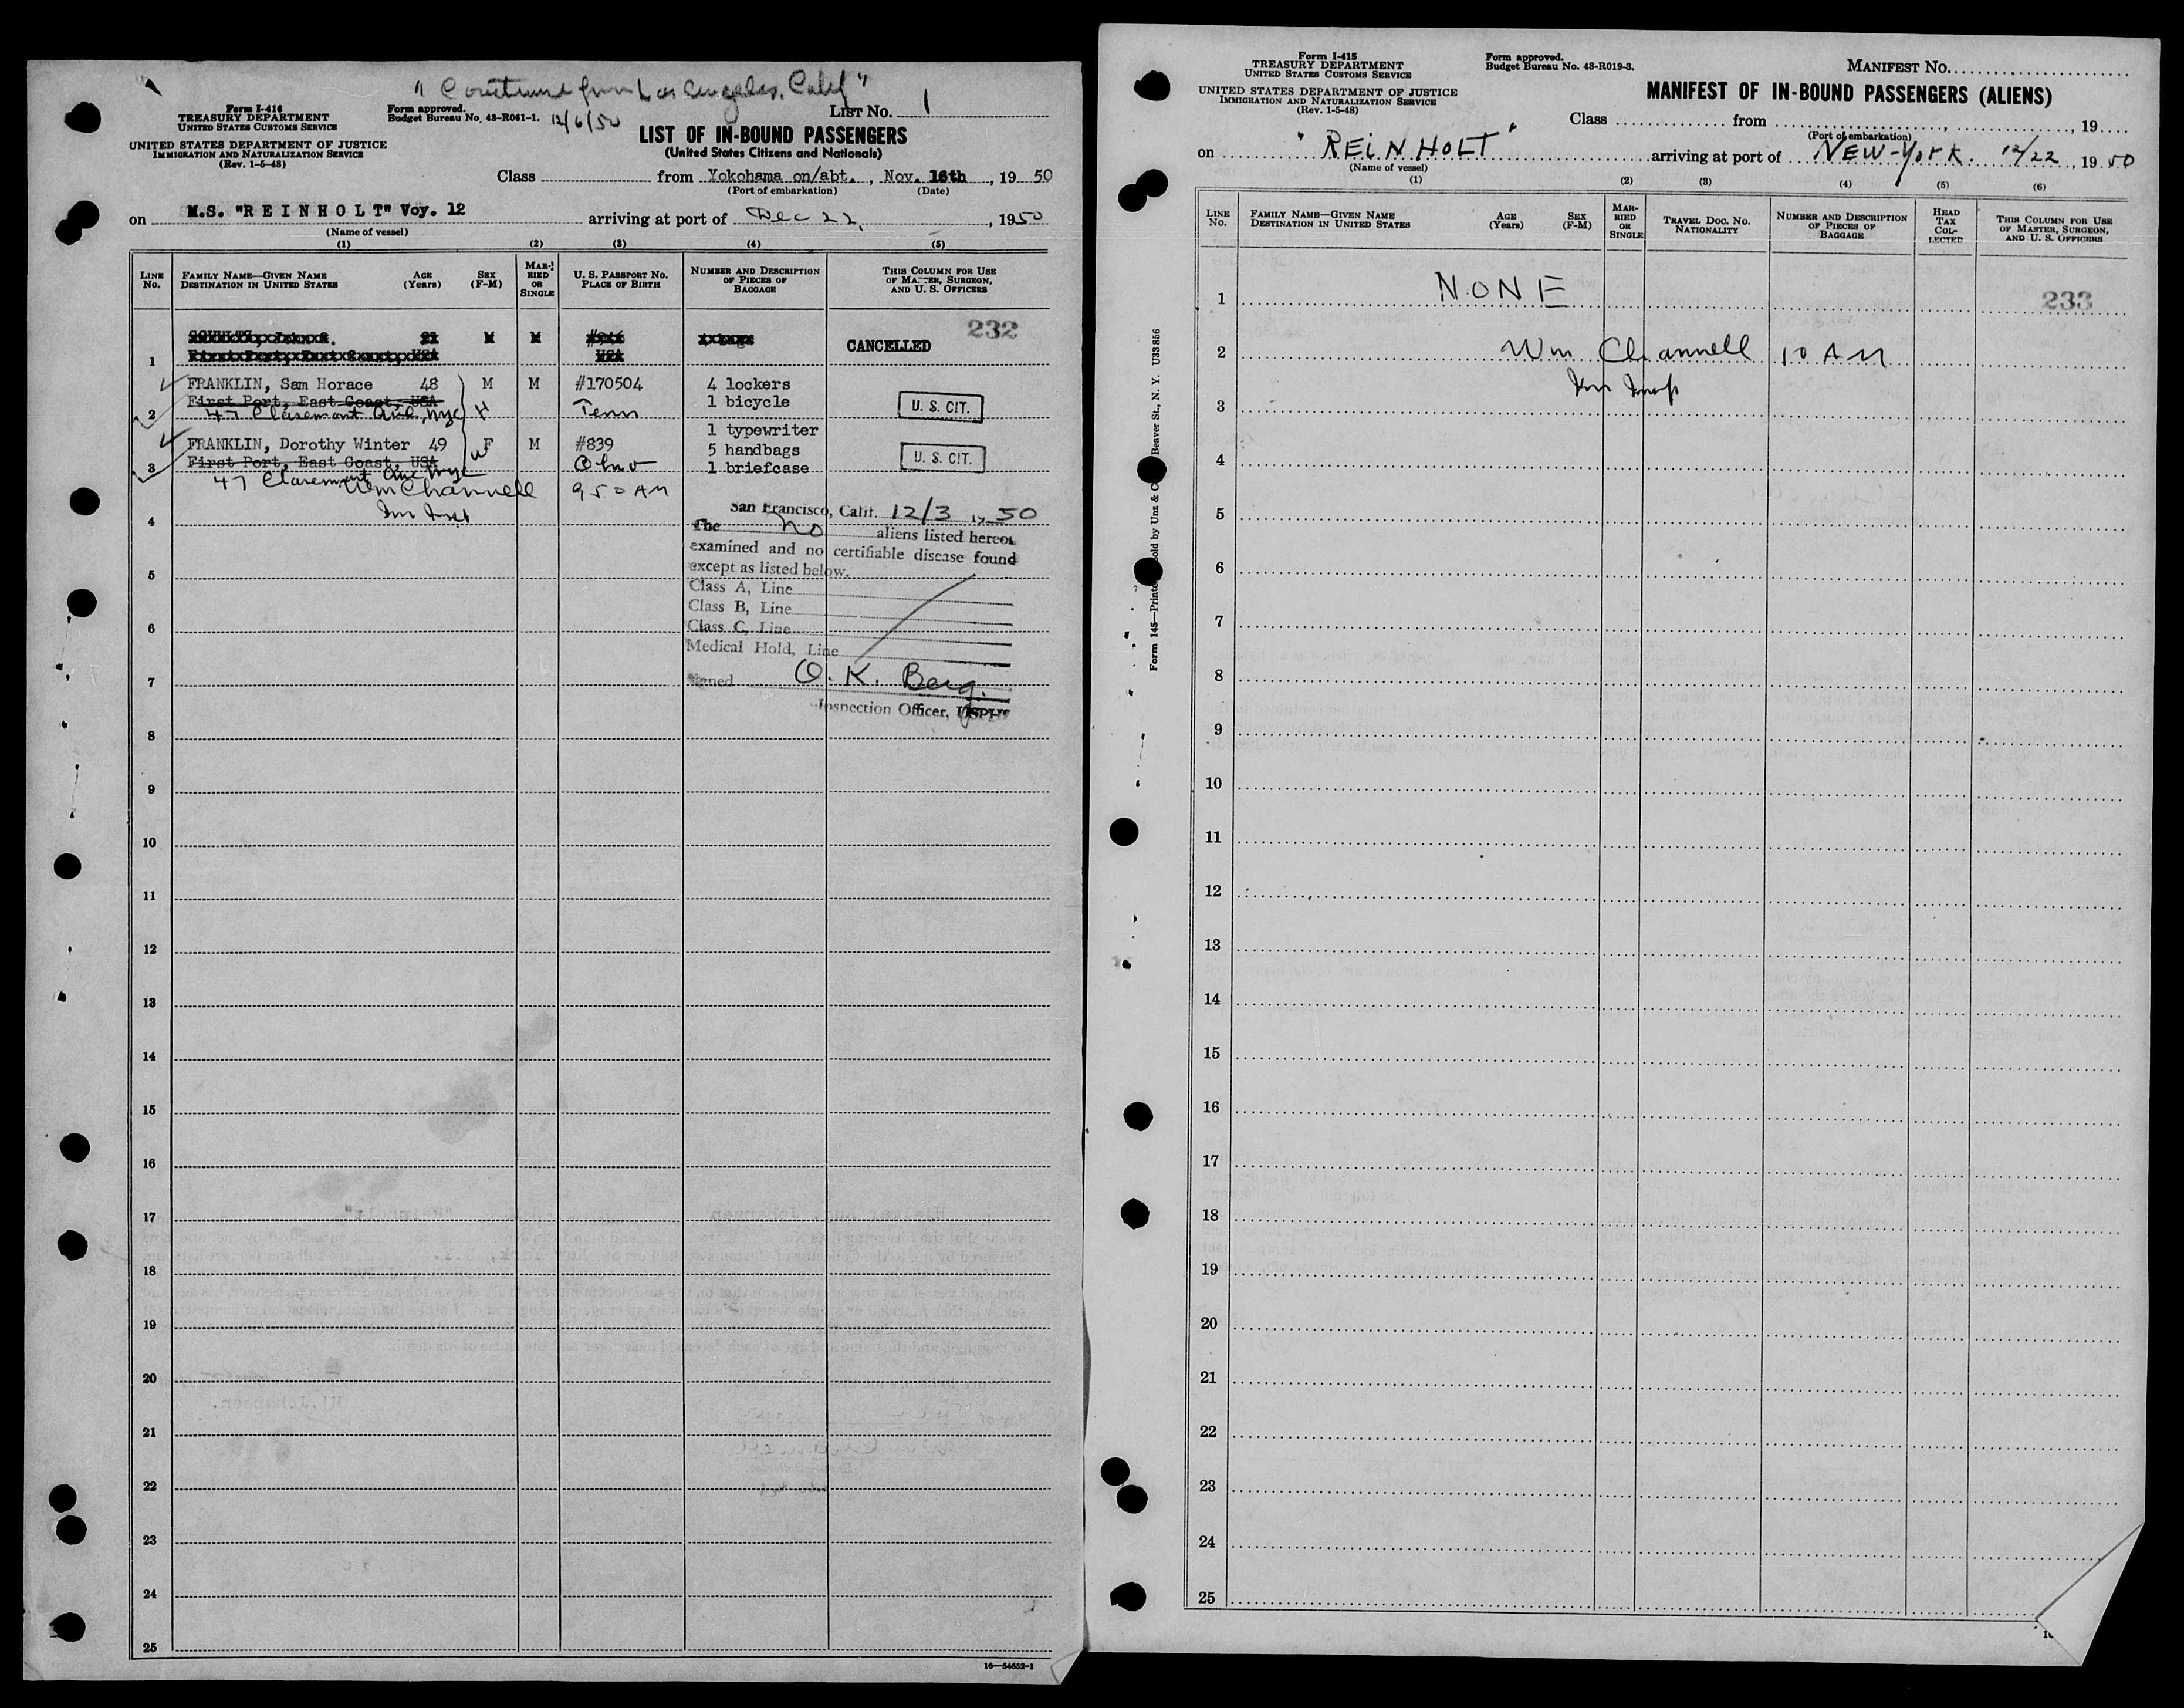 " Continued from Los Angeles, Calif "
12/6/50
Form I-416
TREASURY DEPARTMENT
UNITED STATES CUSTOMS SERVICE
UNITED STATES DEPARTMENT OF JUSTICE
IMMIGRATION AND NATURALIZATION SERVICE
(Rev. 1-5-48)
Form approved.
Budget Bureau No. 43-R061-1.
LIST No. 1
LIST OF IN-BOUND PASSENGERS
(United States Citizens and Nationals)
Class from Yokohama on/abt., Nov. 16th, 19 50
(Port of embarkation) (Date)
on M.S. "REINHOLT" Voy. 12 arriving at port of Dec 22, 1950
(Name of vessel)
(1) (2) (3) (4) (5)
LINE No.
FAMILY NAME—GIVEN NAME
DESTINATION IN UNITED STATES
AGE (Years)
SEX (F-M)
MARRIED OR SINGLE
U. S. PASSPORT No.
PLACE OF BIRTH
NUMBER AND DESCRIPTION OF PIECES OF BAGGAGE
THIS COLUMN FOR USE OF MASTER, SURGEON, AND U. S. OFFICERS
232
1 M M USA CANCELLED
FRANKLIN, Sam Horace 48 M M #170504 4 lockers
First Port, East Coast, USA 1 bicycle U. S. CIT.
2 47 Claremont Ave, NYC H Tenn
1 typewriter
FRANKLIN, Dorothy Winter 49 F M #839 5 handbags
3 First Port, East Coast, USA W Ohio 1 briefcase U. S. CIT.
47 Claremont Ave NYC
Wm Channell 950 AM
Imm Insp
San Francisco, Calif. 12/3 1950
The no aliens listed hereon
examined and no certifiable disease found
except as listed below.
Class A, Line
Class B, Line
Class C, Line
Medical Hold, Line
Signed O. K. Berg.
Inspection Officer, USPHS
4
5
6
7
8
9
10
11
12
13
14
15
16
17
18
19
20
21
22
23
24
25
16—54652-1
Form I-415
TREASURY DEPARTMENT
UNITED STATES CUSTOMS SERVICE
UNITED STATES DEPARTMENT OF JUSTICE
IMMIGRATION AND NATURALIZATION SERVICE
(Rev. 1-5-48)
Form approved.
Budget Bureau No. 43-R019-3.
MANIFEST No.
MANIFEST OF IN-BOUND PASSENGERS (ALIENS)
Class from , , 19
(Port of embarkation)
on "REINHOLT" arriving at port of NEW-YORK. 12/22, 1950
(Name of vessel)
(1) (2) (3) (4) (5) (6)
LINE No.
FAMILY NAME—GIVEN NAME
DESTINATION IN UNITED STATES
AGE (Years)
SEX (F-M)
MARRIED OR SINGLE
TRAVEL DOC. No.
NATIONALITY
NUMBER AND DESCRIPTION OF PIECES OF BAGGAGE
HEAD TAX COLLECTED
THIS COLUMN FOR USE OF MASTER, SURGEON, AND U. S. OFFICERS
1 NONE 233
2 Wm Channell 10 AM
Imm Insp
3
4
5
6
7
8
9
10
11
12
13
14
15
16
17
18
19
20
21
22
23
24
25
Form 145—Printed sold by Unz & Beaver St., N. Y. U33856